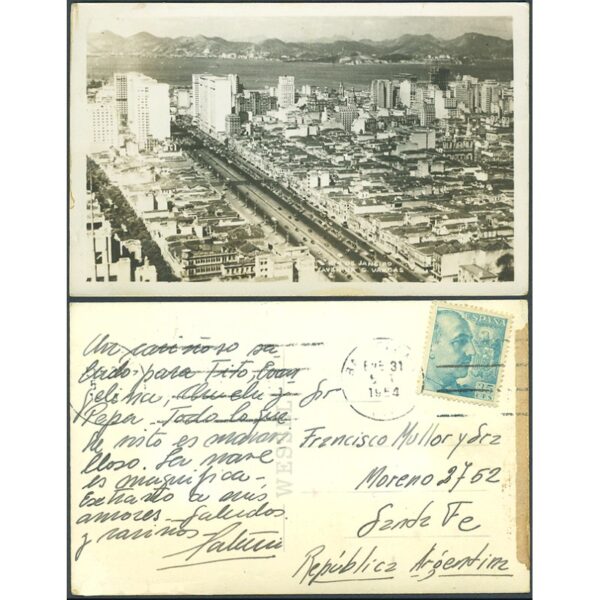 RIO DE JANEIRO
AVENIDA G. VARGAS
Un cariñoso sa
ludo para Tito, Evan
gelina, y
Pepa. Todo lo que
he visto es maravi
lloso. La nave
es magnífica -
Extraño a mis
amores. Saludos
y cariños
WESSEL
ENE 31
1954
ESPAÑA
CTS
Sr
Francisco Mullor y Sra
Moreno 2762
Santa Fe
República Argentina